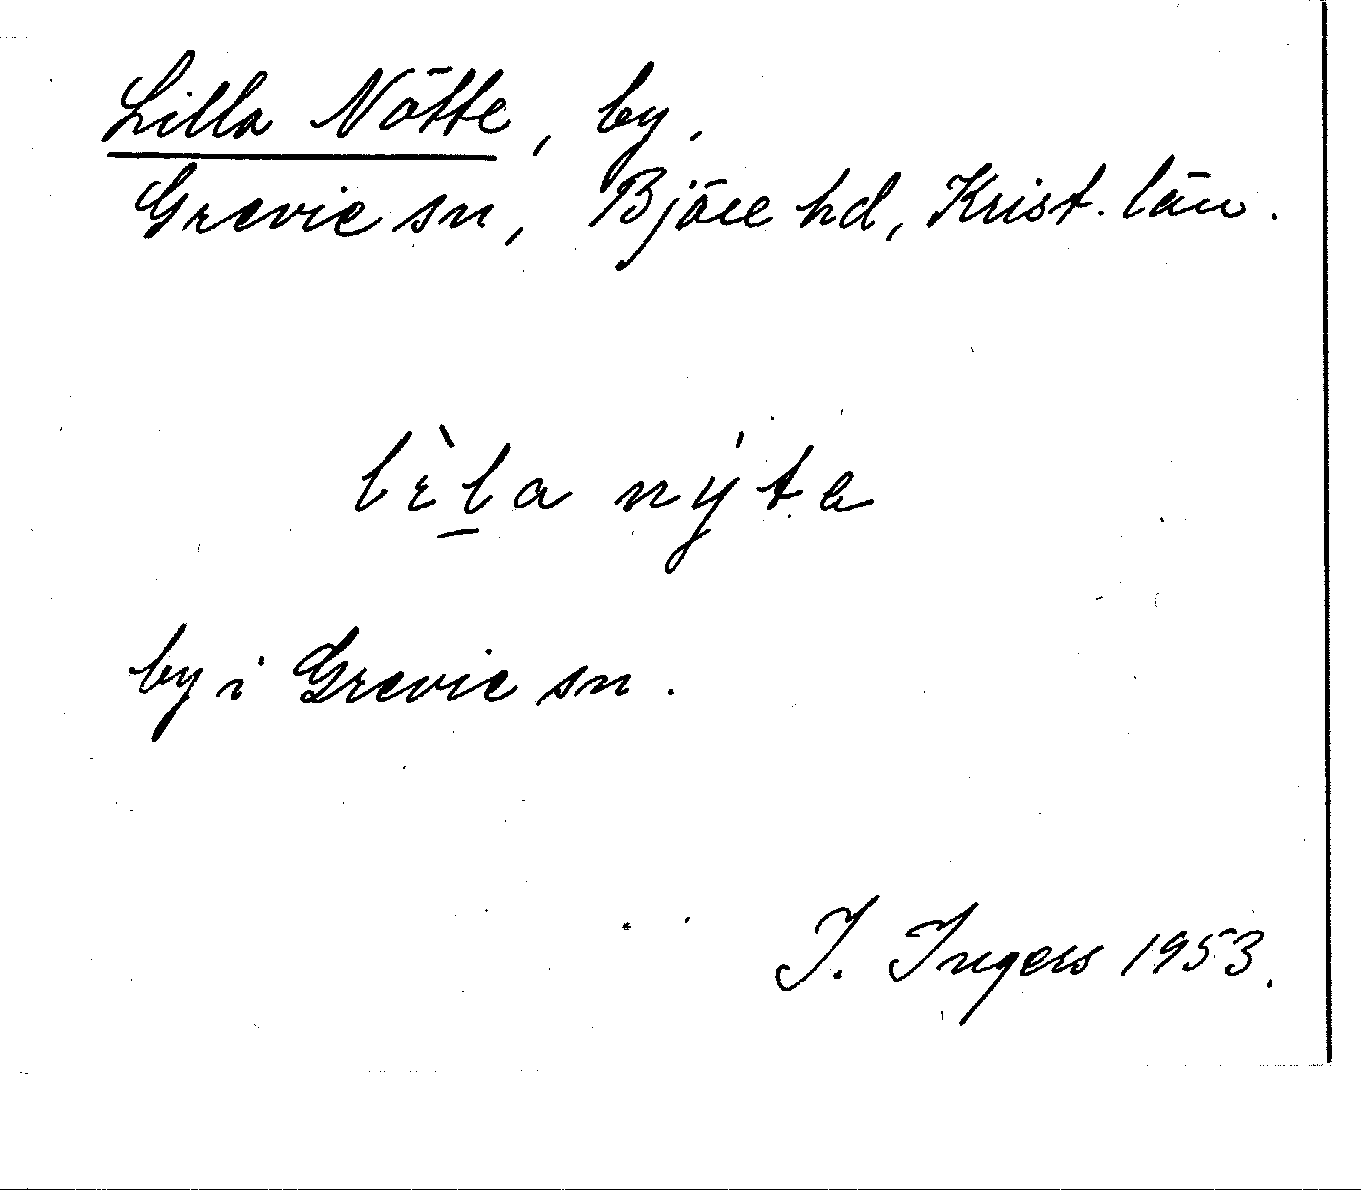 Lilla Nötte, by,
Grevie sn, Bjäre hd, Krist. län.
lɛ̀l̠a nýtɐ
by i Grevie sn.
I. Ingers 1953.